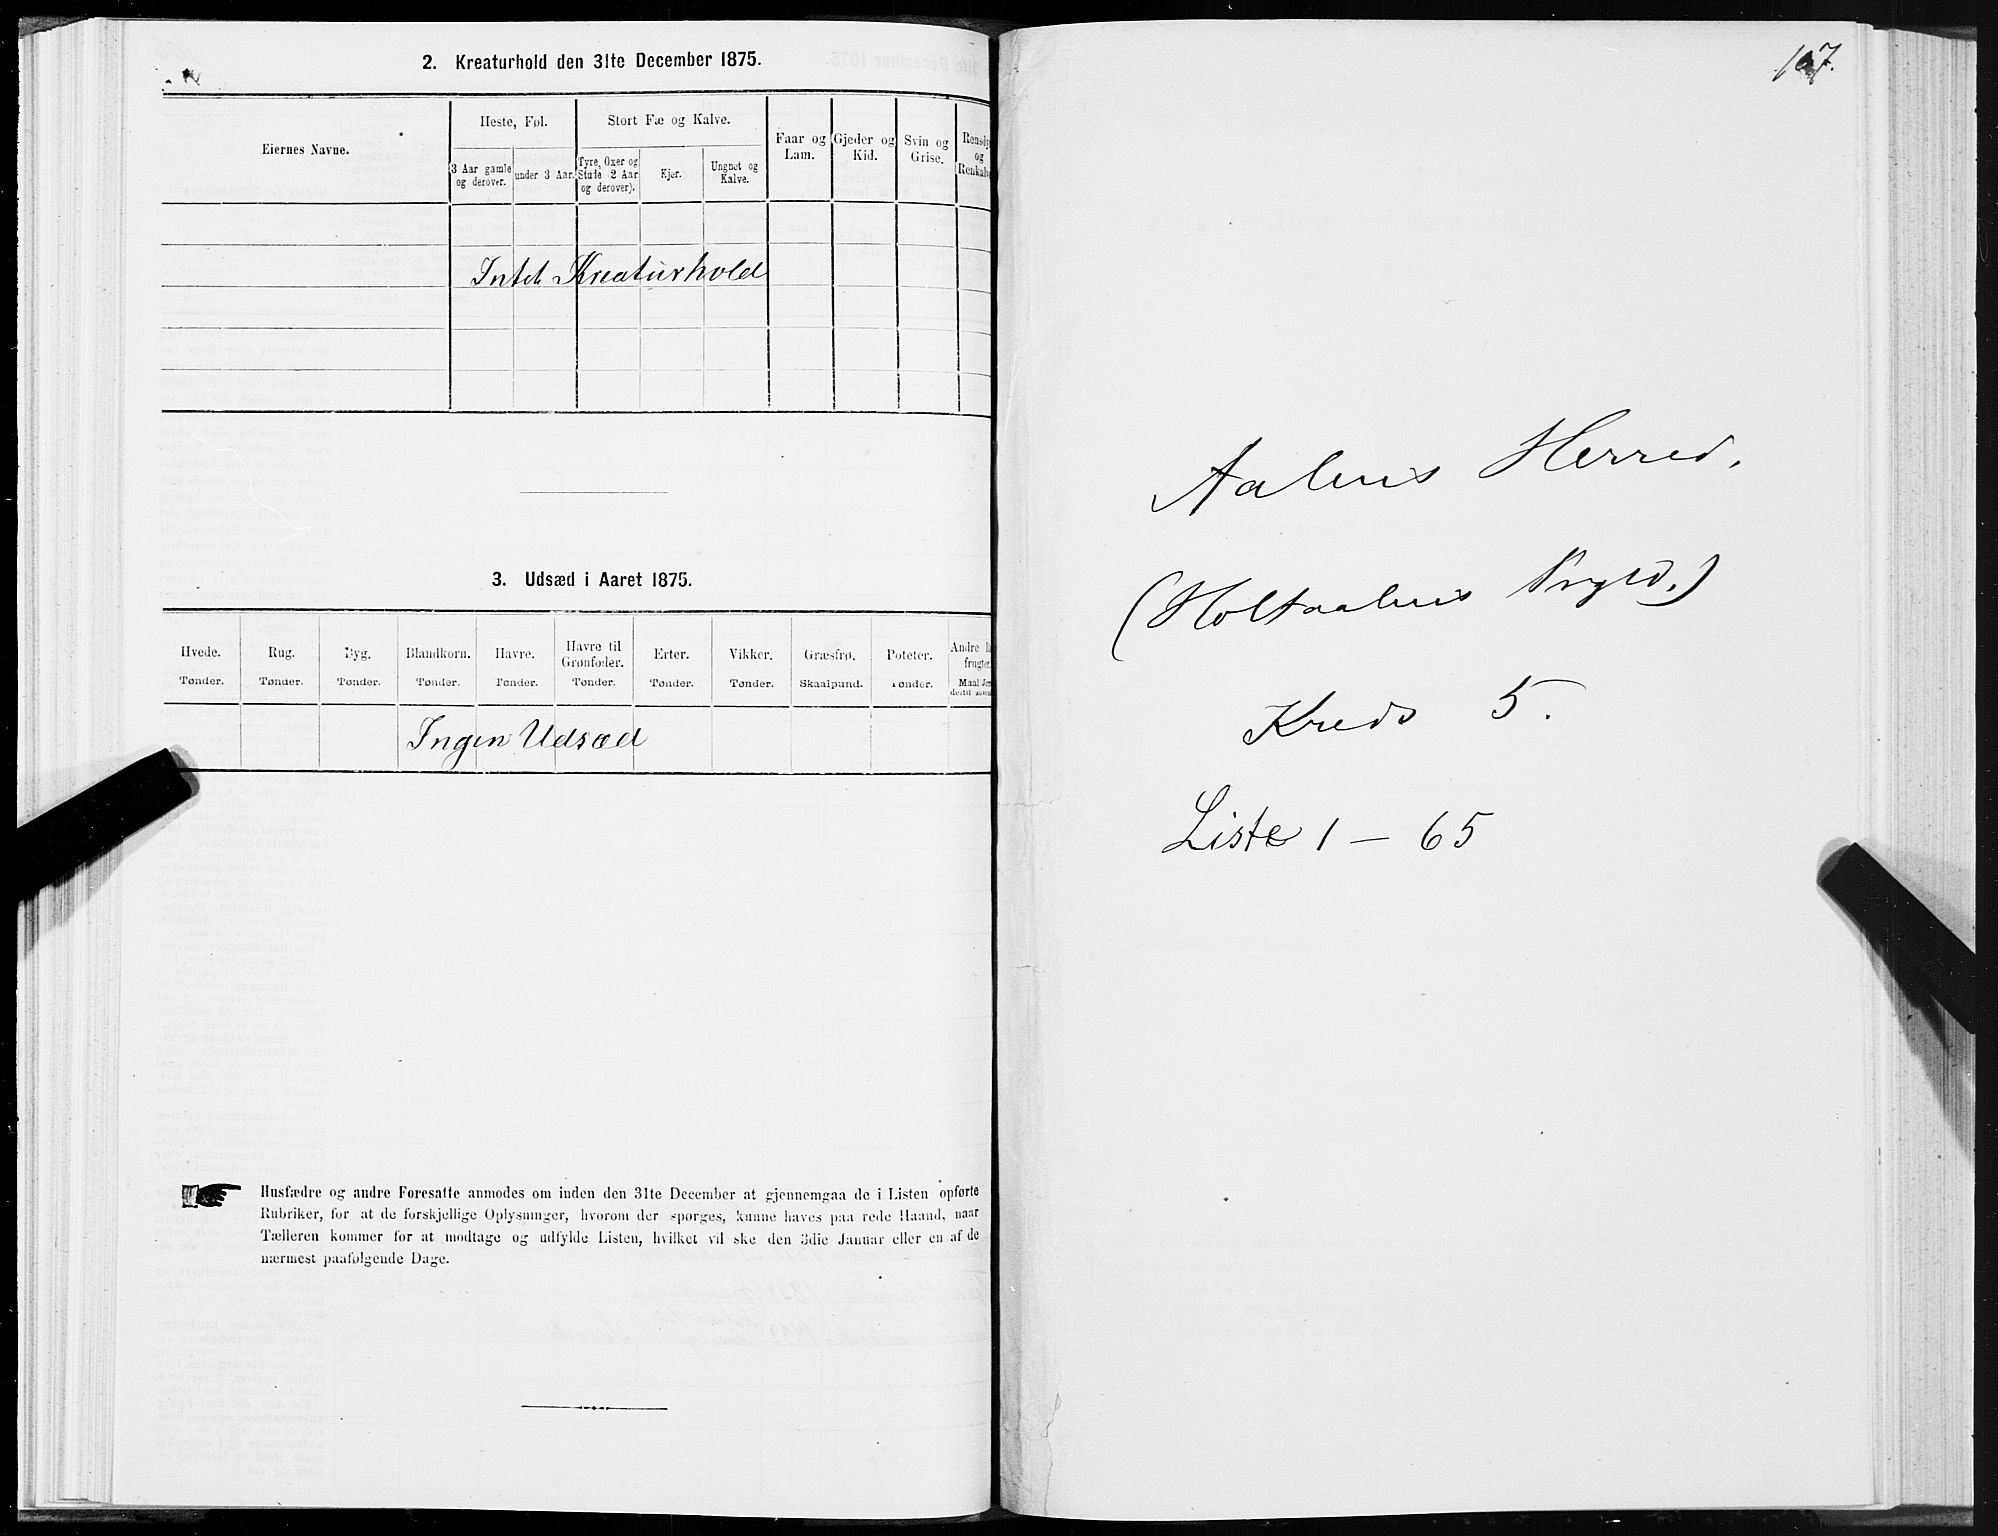 2. Kreaturhold den 31te December 1875.
Eiernes Navne.
Heste, Føl.
Stort Fæ og Kalve.
Faar og Lam.
Gjeder og Kid.
Svin og Grise.
og
3 Aar gamle og derover.
under 3 Aar.
Tyre, Oxer og Stude (2 Aar og derover).
Kjer.
Ungnet og Kalve.
Intet Kreaturhold
3. Udsæd i Aaret 1875.
Hvede. Rug. Byg. Blandkorn. Havre. Havre til Grønfoder. Erter. Vikker. Græsfrø. Poteter. Andre
Tønder. Tønder. Tønder. Tønder. Tønder. Tønder. Tønder. Tønder. Skaalpund. Tønder. Maal
Ingen Udsæd
Husfædre og andre Foresatte anmodes om inden den 31te December at gjennemgaa de i Listen opførte
Rubriker, for at de forskjellige Oplysninger, hvorom der spørges, kunne haves paa rede Haand, naar
Tælleren kommer for at modtage og udfylde Listen, hvilket vil ske den 3die Januar eller en af de
nærmest paafølgende Dage.
167.
Aalens Herred.
(Holtaalens Prgld.)
Kreds 5.
Liste 1 - 65